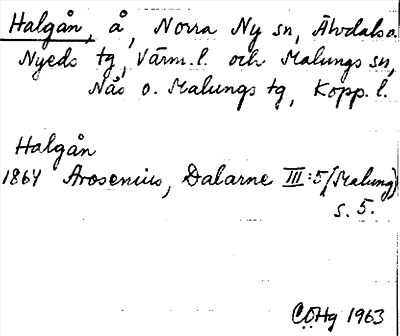 Halgån, å, Norra Ny sn, Älvdals o.
Nyeds tg, Värm. l. och Malungs sn,
Nås o. Malungs tg, Kopp. l.
Halgån
1864 Arosenius, Dalarne III:5 (Malung)
s. 5.
CÖHg 1963